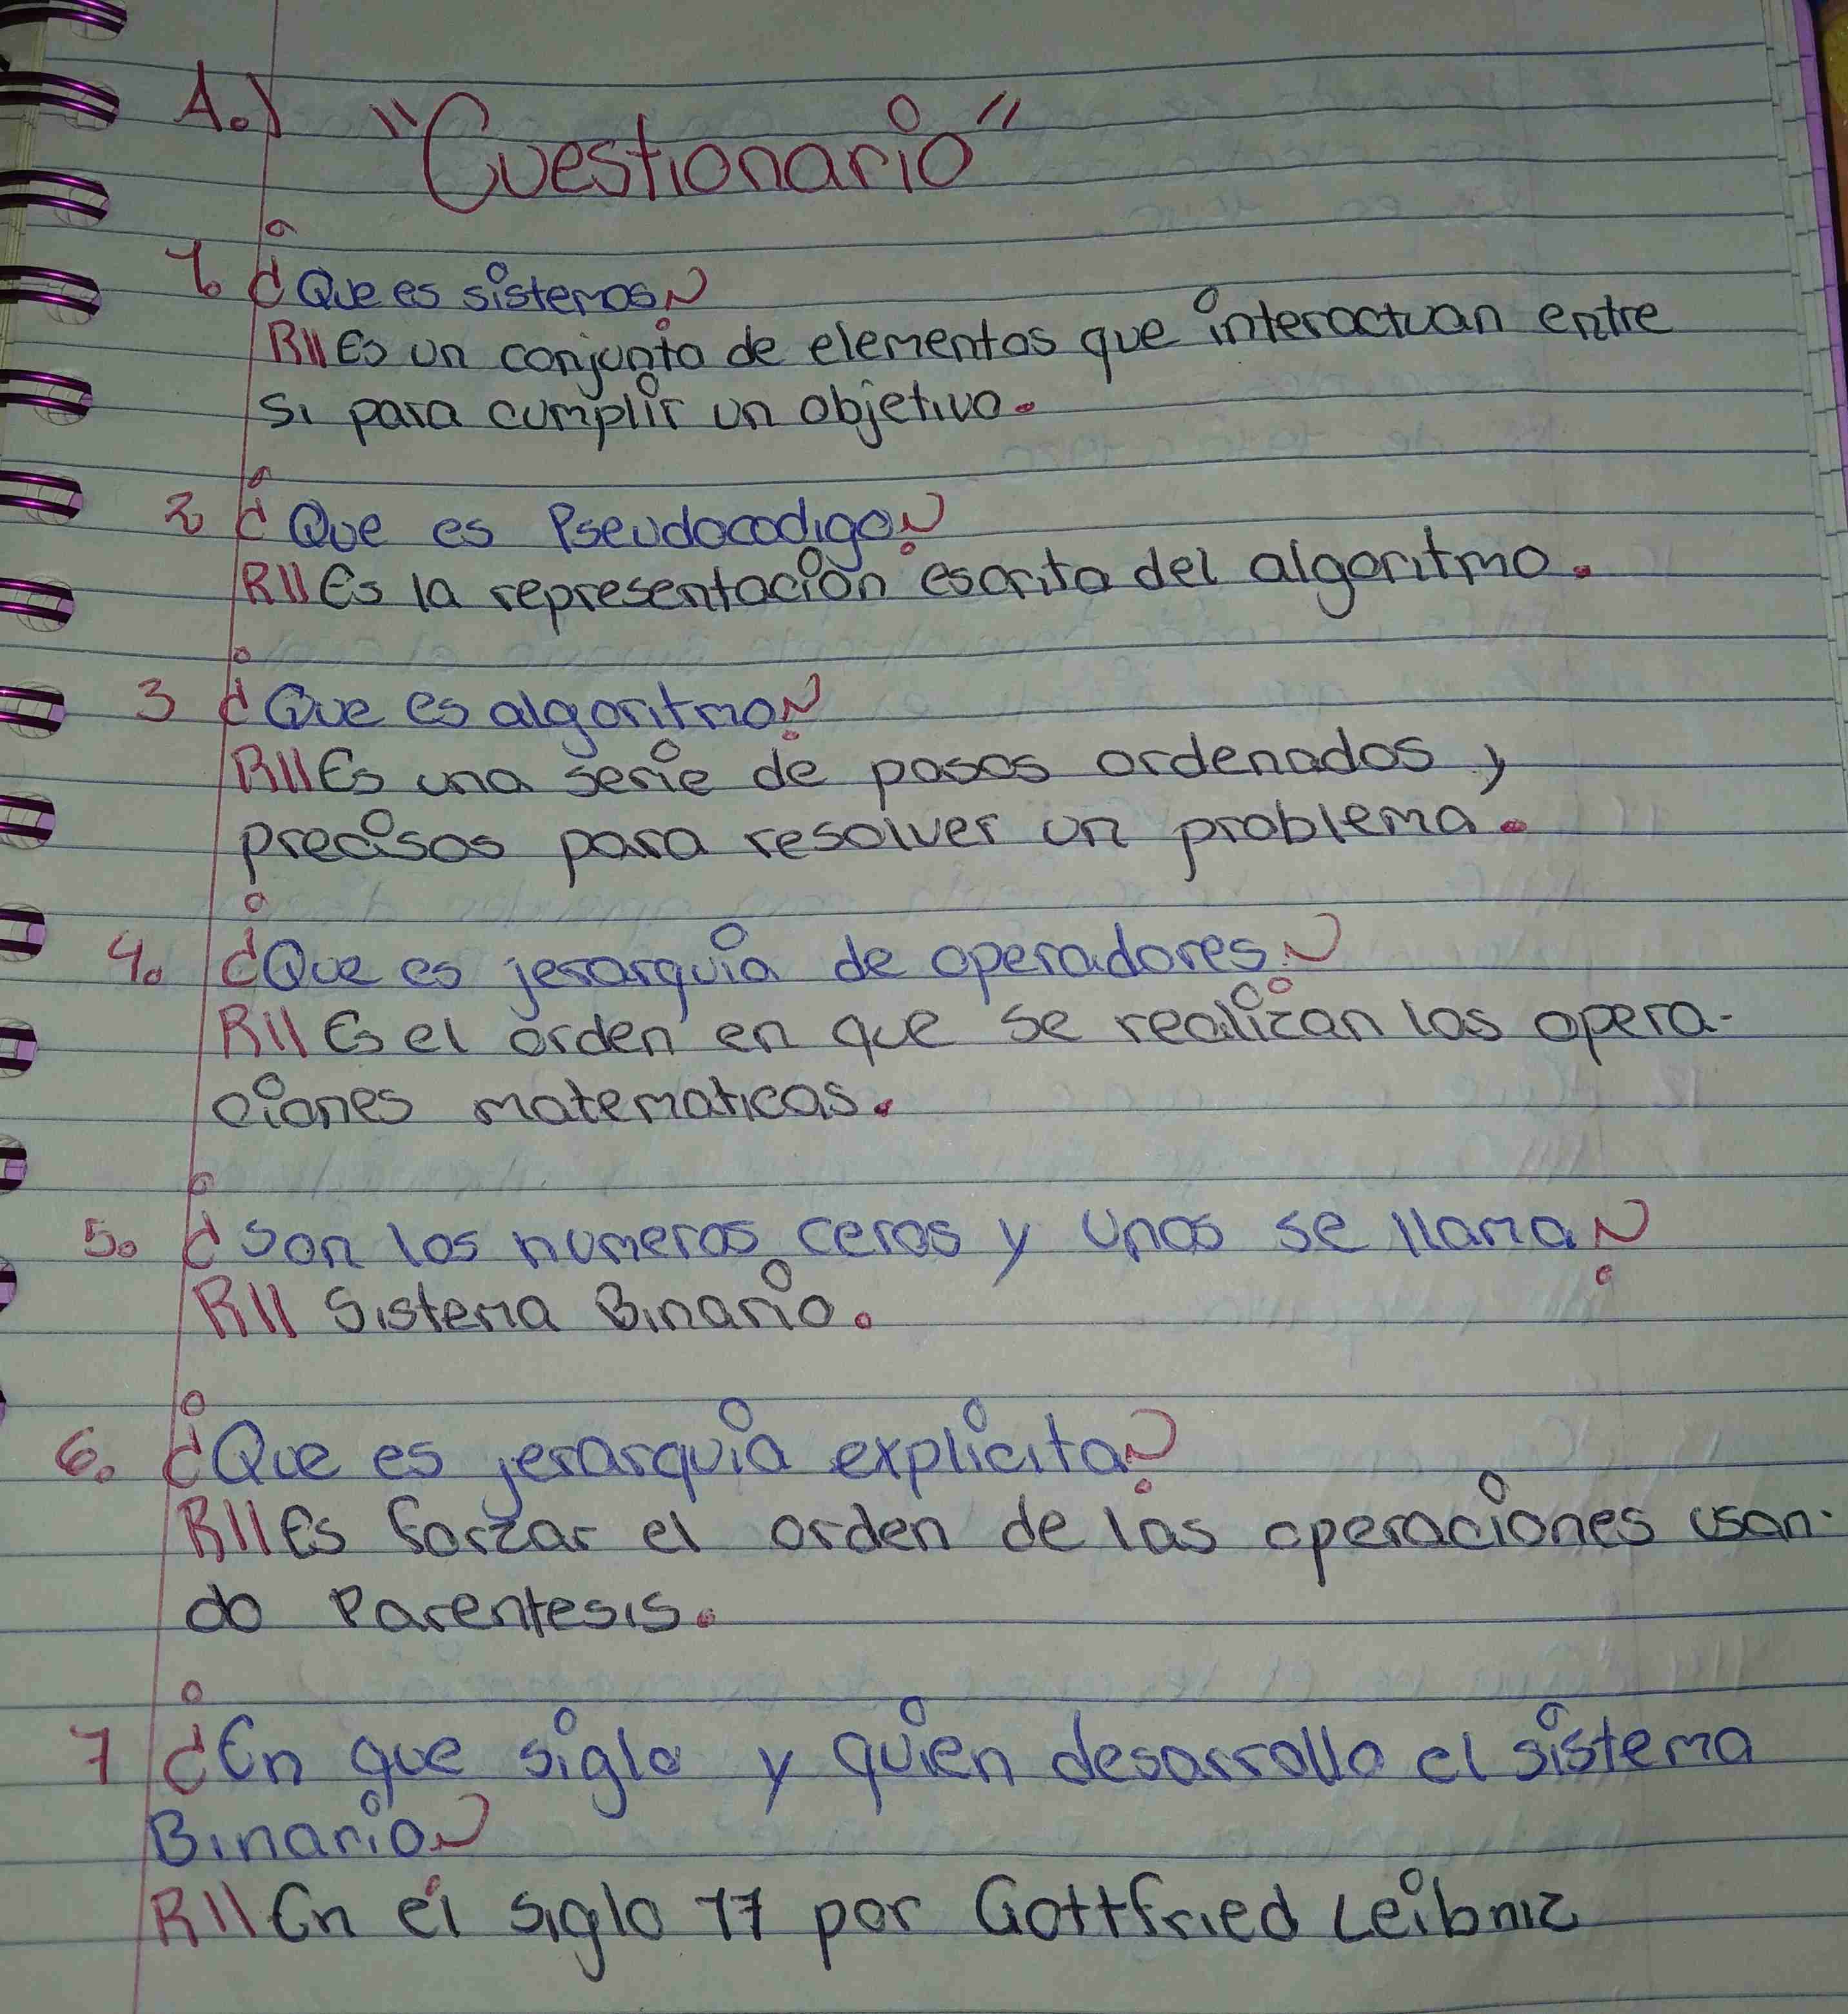 A.) "Cuestionario"
1. ¿Que es sistemas?
R// Es un conjunto de elementos que interactuan entre
si para cumplir un objetivo.
2 ¿Que es Pseudocodigo?
R// Es la representación escrita del algoritmo.
3 ¿Que es algoritmo?
R// Es una serie de pasos ordenados y
precisos para resolver un problema.
4. ¿Que es jerarquia de operadores?
R// Es el orden en que se realizan las opera-
ciones matematicas.
5. ¿Son los numeros ceros y unos se llama?
R// Sistema Binario.
6. ¿Que es jerarquia explicita?
R// Es forzar el orden de las operaciones usan-
do Parentesis.
7 ¿En que siglo y quien desarrollo el sistema
Binario?
R// En el siglo 17 por Gottfried Leibniz